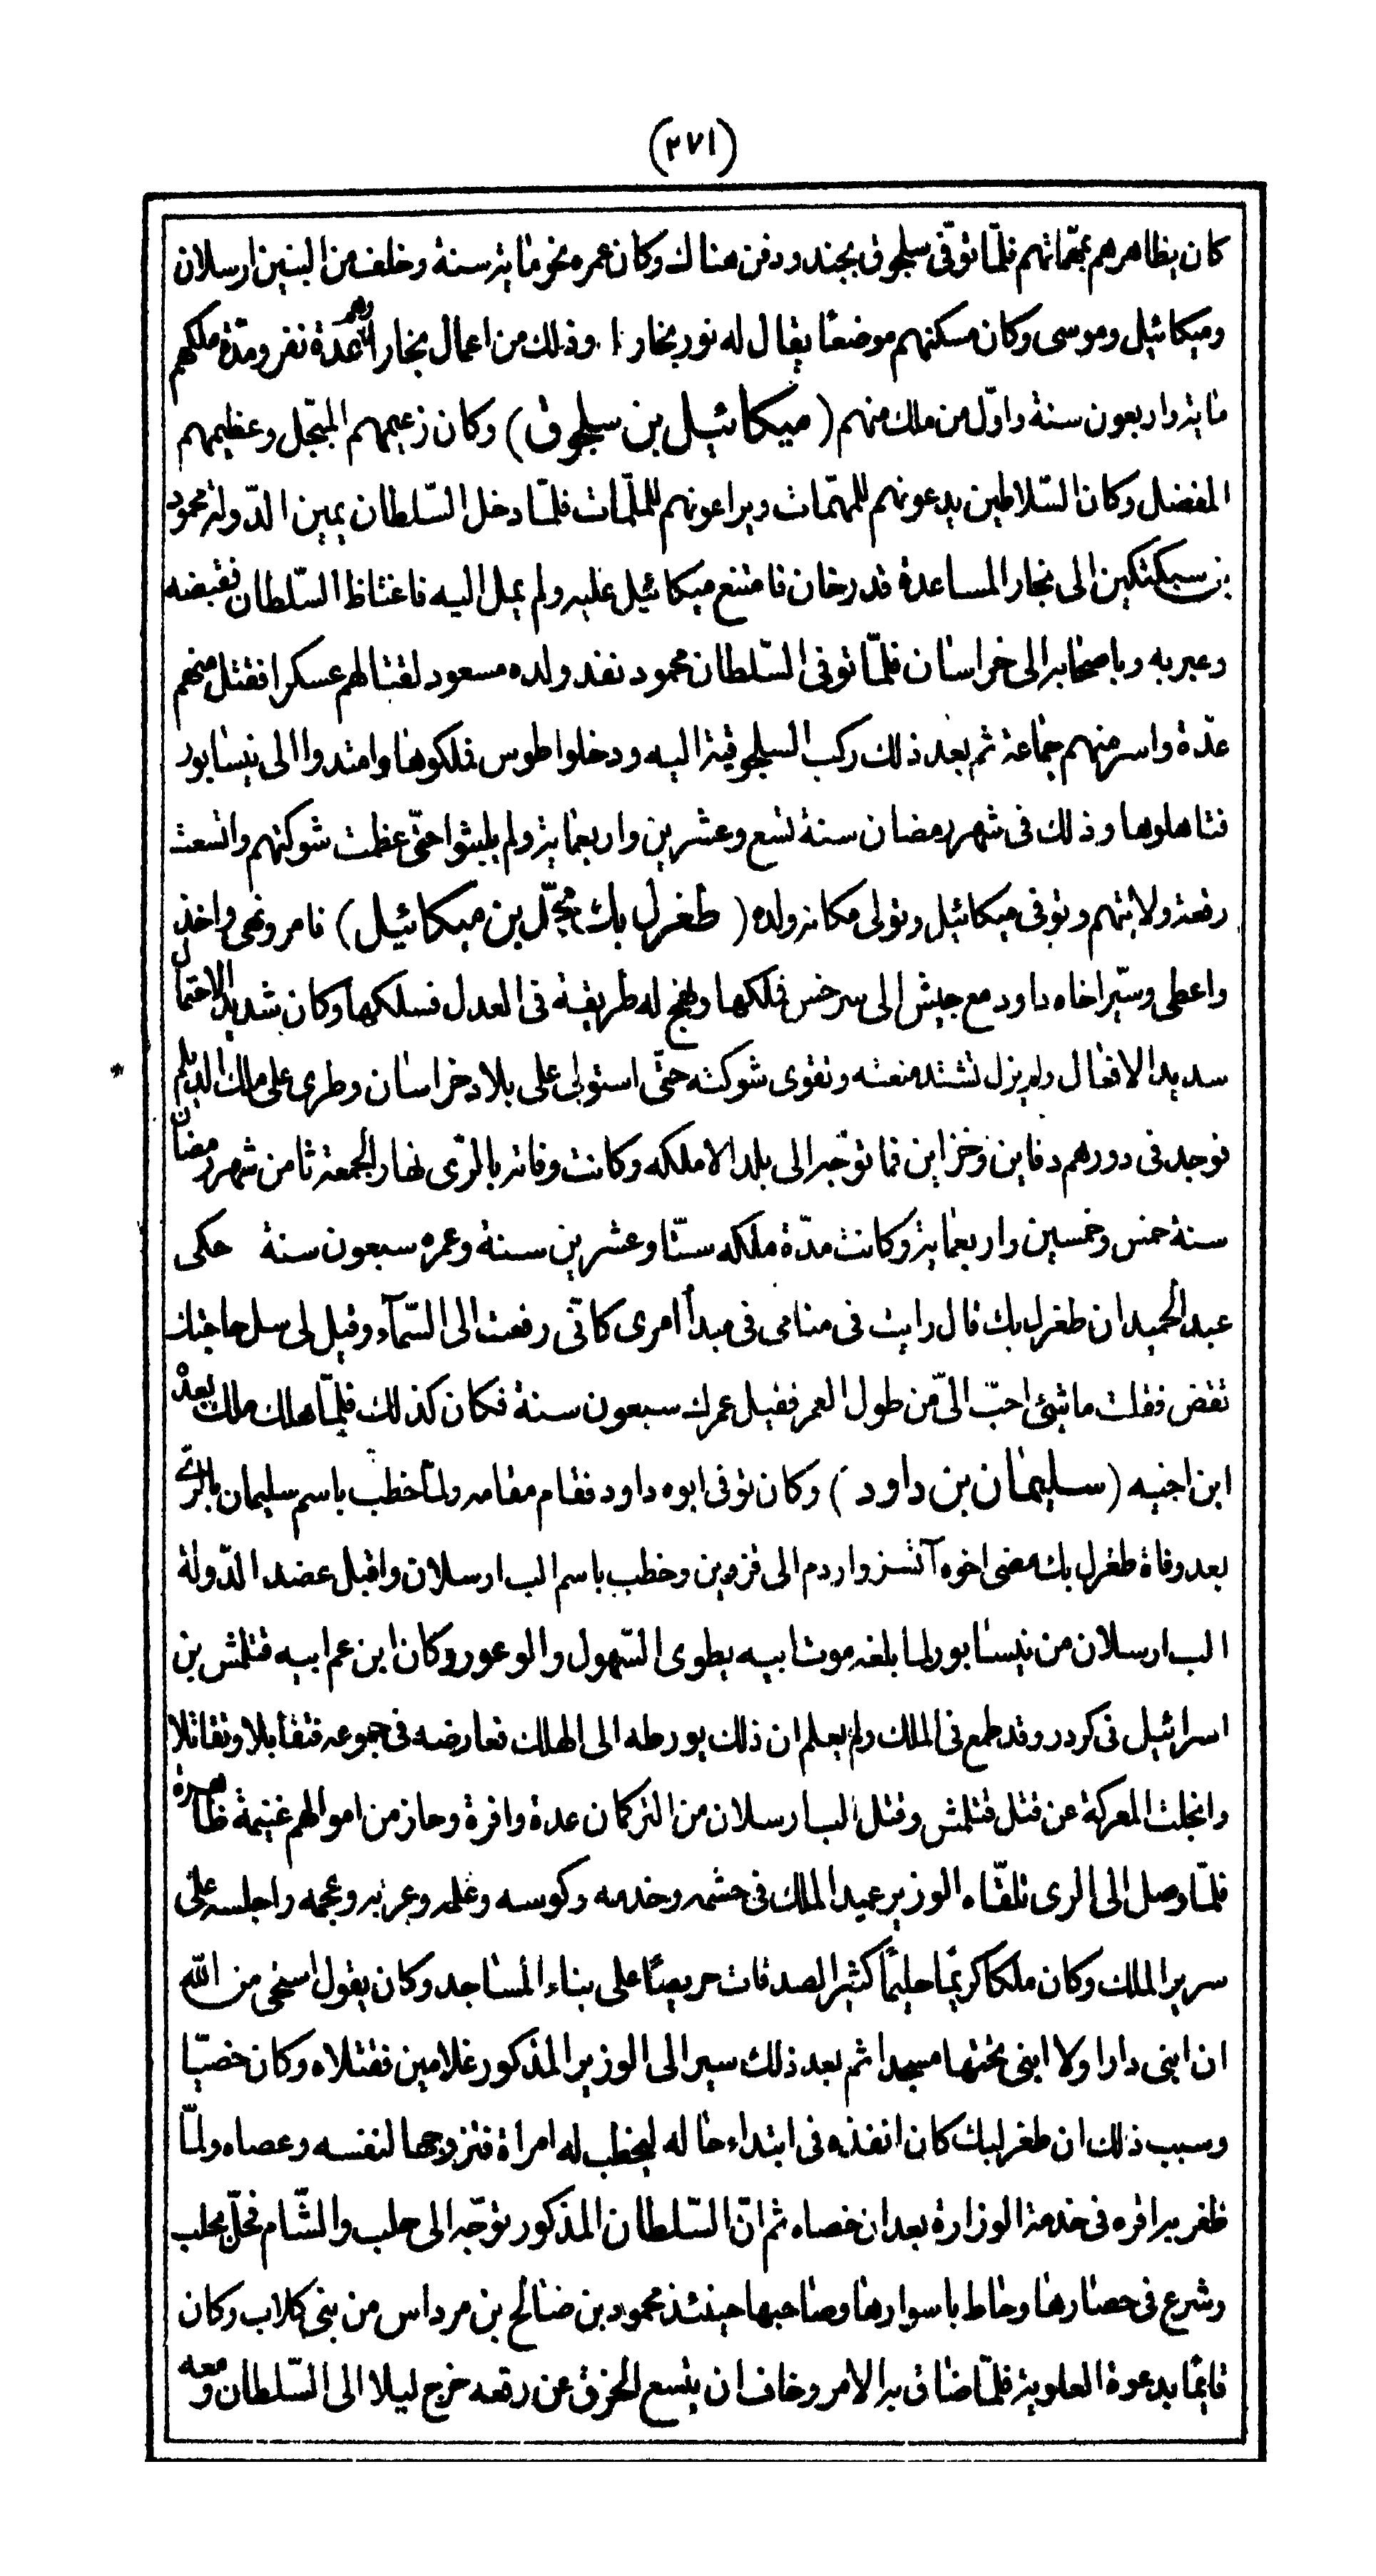 (٢٧١)
كان يظاهرهم بمهماتهم فلمّا توفّى سلجوق بجند ودفن هناك وكان عمره نحو مائة سنة وخلف من البنين ارسلان
وميكائيل وموسى وكان مسكنهم موضعًا يقال له نور بخارا وذلك من اعمال بخارا وهم عدة نفر ومدّة ملكهم
مائة واربعون سنة واوّل من ملك منهم (ميكائيل بن سلجوق) وكان زعيمهم المبجّل وعظيمهم
المفضل وكان السّلاطين يدعونهم للمهمّات ويراعونهم للملمّات فلمّا دخل السّلطان يمين الدّولة محمود
بن سبكتكين الى بخارا لمساعدة قدرخان فامتنع ميكائيل عليه ولم يمل اليه فاغتاظ السّلطان فقبضه
وعبر به وباصحابه الى خراسان فلمّا توفى السّلطان محمود نفد ولده مسعود لقتالهم عسكرا فقتل منهم
عدّة واسر منهم جماعة ثم بعد ذلك ركب السلجوقية اليه ودخلوا طوس فملكوها وامتدوا الى نيسابور
فتاهلوها وذلك فى شهر رمضان سنة تسع وعشرين واربعماية ولم يلبثوا حتّى عظمت شوكتهم واتسعت
رقعة ولايتهم وتوفى ميكائيل وتولى مكانه ولده (طغرل بك محمّد بن ميكائيل) فامر ونهى واخذ
واعطى وسيّر اخاه داود مع جيش الى سرخس فملكها ونهج له طريقة فى العدل فسلكها وكان شديد الاحتمال
سديد الافعال ولم يزل تشتد منعته وتقوى شوكته حتّى استولى على بلاد خراسان وطرى على ملك الديلم
فوجد فى دورهم دفاين وخزاين فما توجّه الى بلد الا ملكه وكانت وفاته بالرّى نهار الجمعة ثامن شهر رمضان
سنة خمس وخمسين واربعماية وكانت مدّة ملكه ستّا وعشرين سنة وعمره سبعون سنة حكى
عبد الحميد ان طغرل بك قال رايت فى منامى فى مبدأ امرى كانّى رفعت الى السّمآء وقيل لى سل حاجتك
تقض فقلت ما شئ احبّ الىّ من طول العمر فقيل عمرك سبعون سنة فكان كذلك فلمّا هلك ملك بعده
ابن اخيه (سليمان بن داود) وكان توفى ابوه داود فقام مقامه ولمّا خطب باسم سليمان بالرّى
بعد وفاة طغرل بك مضى اخوه آتسز واردم الى قزوين وخطب باسم الب ارسلان واقبل عضد الدّولة
الب ارسلان من نيسابور لما بلغه موت ابيه يطوى السّهول والوعور وكان ابن عم ابيه قتلمش بن
اسرائيل فى كردر وقد طمع فى الملك ولم يعلم ان ذلك يورطه الى الهلك فعارضه فى جموعه فتقابلا وتقاتلا
وانجلت المعركة عن قتل قتلمش وقتل الب ارسلان من التركمان عدة وافرة وحاز من اموالهم غنيمة ظاهرة
فلمّا وصل الى الرى تلقّاه الوزير عميد الملك فى حشمه وخدمه وكوسه وعلمه وعربه وعجمه واجلسه على
سرير الملك وكان ملكا كريمًا حليمًا كثير الصدقات حريصًا على بناء المساجد وكان يقول استحى من الله
ان ابنى دارا ولا ابنى بحذتها مسجدا ثم بعد ذلك سير الى الوزير المذكور غلامين فقتلاه وكان خصيّا
وسبب ذلك ان طغرلبك كان انفذه فى ابتداء حاله ليخطب له امراة فتزوجها لنفسه وعصاه ولمّا
ظفر به اقره فى خدمة الوزارة بعد ان خصاه ثم انّ السّلطان المذكور توجّه الى حلب والشّام فحلّ بحلب
وشرع فى حصارها وحاط باسوارها وصاحبها حينئذ محمود بن صالح بن مرداس من بنى كلاب وكان
قايمًا بدعوة العلوية فلمّا ضاق به الامر وخاف ان يتسع الخرق عن رقعه خرج ليلا الى السّلطان ومعه